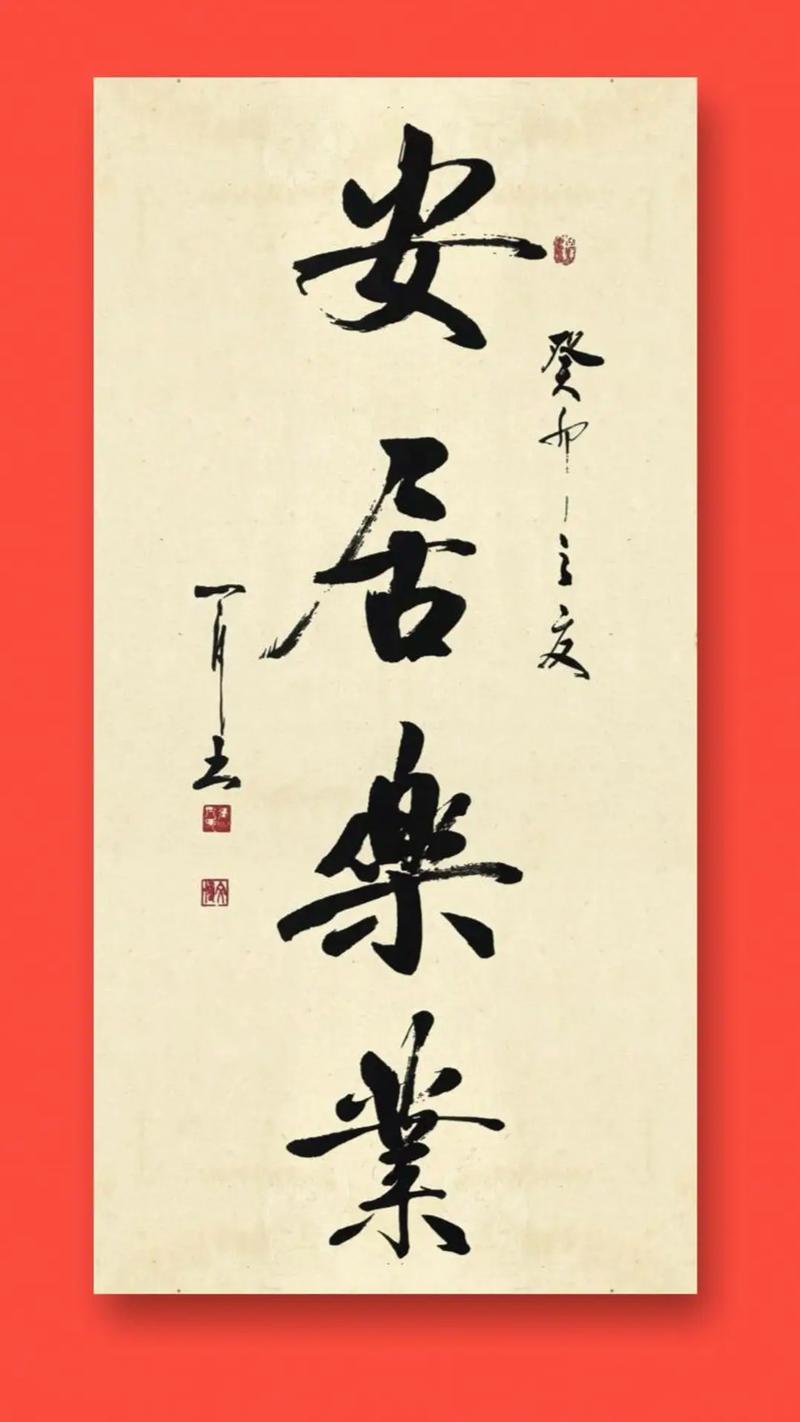 癸卯之夏
安居樂業